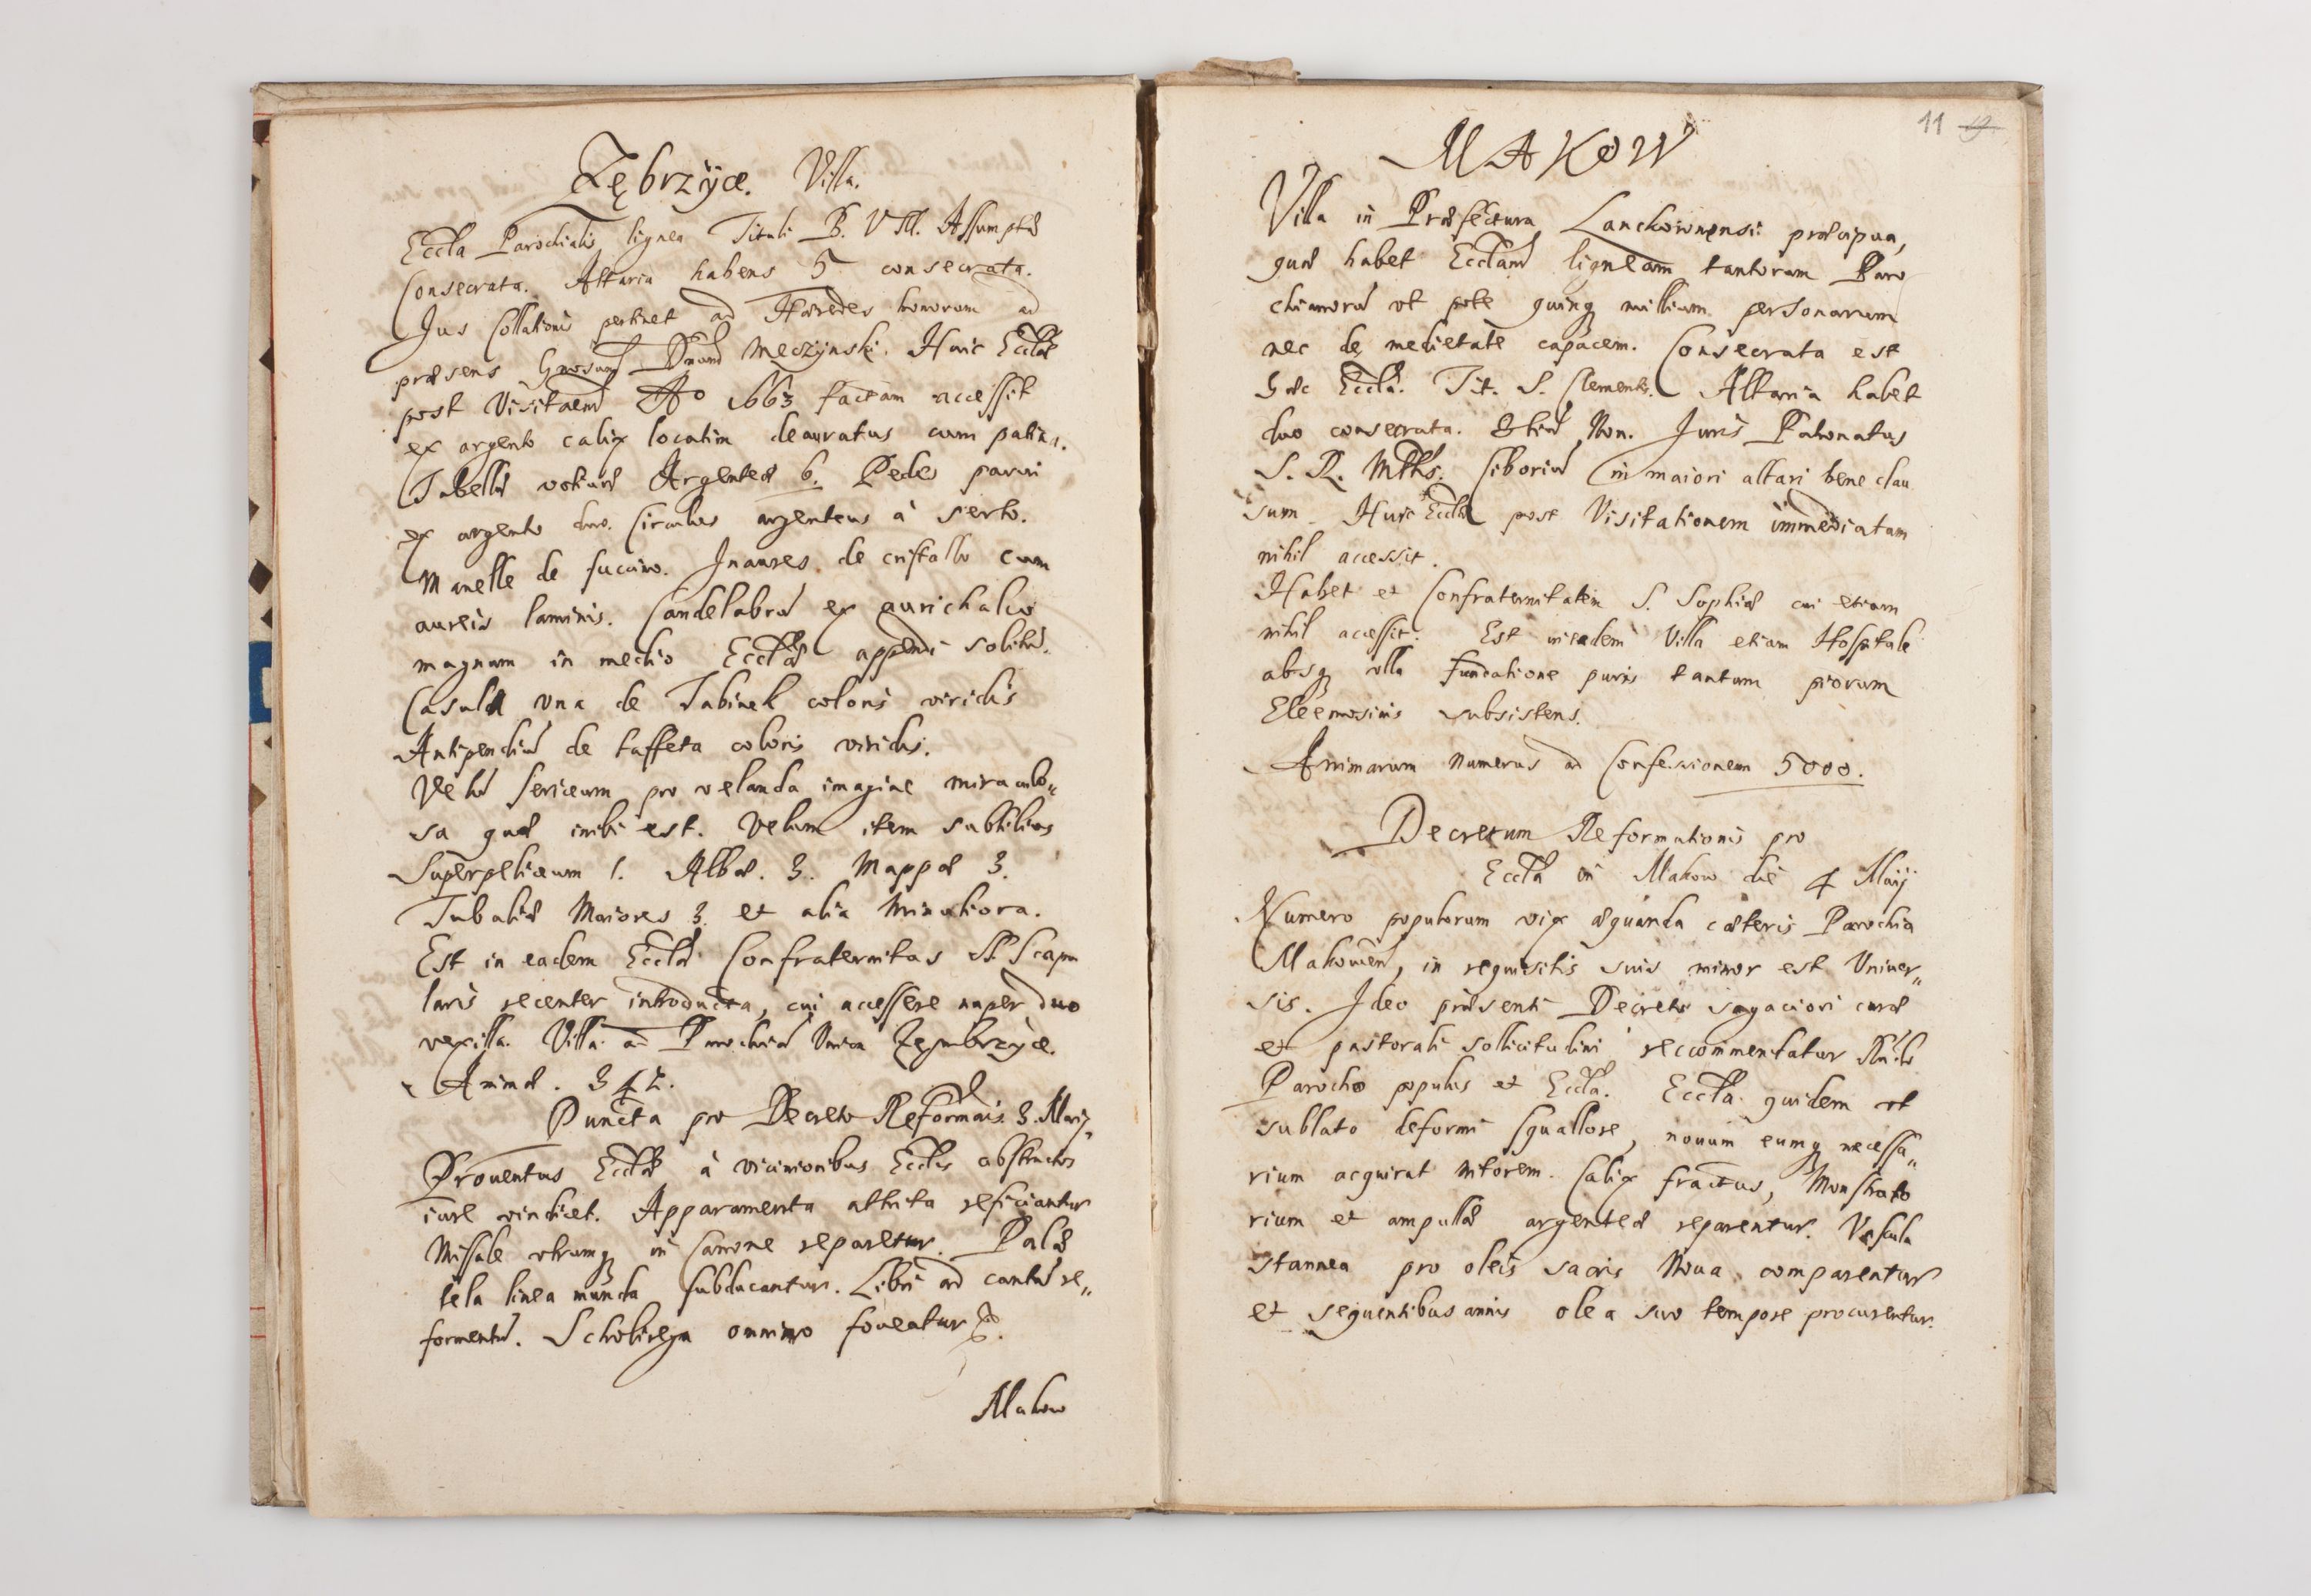 Zębrzyce. Villa.
Eccła Parochialis lignea Tituli B. V. M. Assumptæ
Consecrata. Altaria habens 5 consecrata.
Jus Collationis pertinet ad Hæredes bonorum ad
præsens Gnosum Dnum Meczÿnski. Huic Ecclæ
post Visitaem Ao 1663 factam accessit
ex argento calix locatim deauratus cum patina.
Tabellæ votivæ Argenteæ 6. Pedes parvi
ex argento duo. Circulus argenteus à serto.
Manelle de sucino. Inaures de cristallo cum
aureis laminis. Candelabrū ex aurichalco
magnum in medio Ecclæ appendi solitū.
Casula una de Tabinek coloris viridis
Antipendiū de taffeta coloris viridis.
Velū sericeum pro velanda imagine miraculo„
sa quæ inibi est. Velum item subtilius
Superpeliceum 1. Albæ. 3. Mappæ 3.
Tubaliæ Maiores 3. et alia Minutiora.
Est in eadem Eccla Confraternitas S. Scapu
laris recenter introducta, cui accessere nuper duo
vexilla. Villa ad Parochiā Unica Zembrzÿce.
Animæ. 342.
Puncta pro Decreto Reformaīs. 3. Maij
Proventus Ecclæ à vicinioribus Ecclis abstractos
iure vindicet. Apparamenta attrita reficiantur
Missale utrumq in Canone reparetur. Palæ
tela linea munda subducantur. Libri ad cantū re„
formentr. Scholirega omnino foveatur
Makow
11 19
MAKOW
Villa in Præfectura Lanckoronensi præcipua,
quæ habet Ecclam ligneam tantorum Paro
chianorū ut pote quinq millium personarum
nec de medietate capacem. Consecrata est
hæc Eccla. Tit. S. Clementis. Altaria habet
duo consecrata. Etiā Non. Juris Patronatus
S. R. Mtis. Ciboriū in maiori altari bene clau
sum. Huic Ecclæ post Visitationem immediatam
nihil accessit.
Habet et Confraternitatem S. Sophiæ cui etiam
nihil accessit. Est in eadem Villa etiam Hospitale
absq ulla fundatione puris tantum piorum
Eleemosinis subsistens.
Animarum Numerus ad Confessionem 5000.
Decretum Reformationis pro
Eccla in Makow die 4 Maij
Numero populorum vix æquanda cæteris Parochia
Makowien, in requisitis suis minor est Univer„
sis. Ideo præsenti Decreto sagaciori curæ
et pastorali sollicitudini reccommentatur
Parocho populus et Eccla. Eccla quidem ut
sublato deformi squallore, novum eumq necessa„
rium acquirat nitorem. Calix fractus, Monstrato
rium et ampullæ argenteæ reparentur. Vascula
stannea pro oleis sacris Nova comparentur
et sequentibus annis olea suo tempore procurentur.